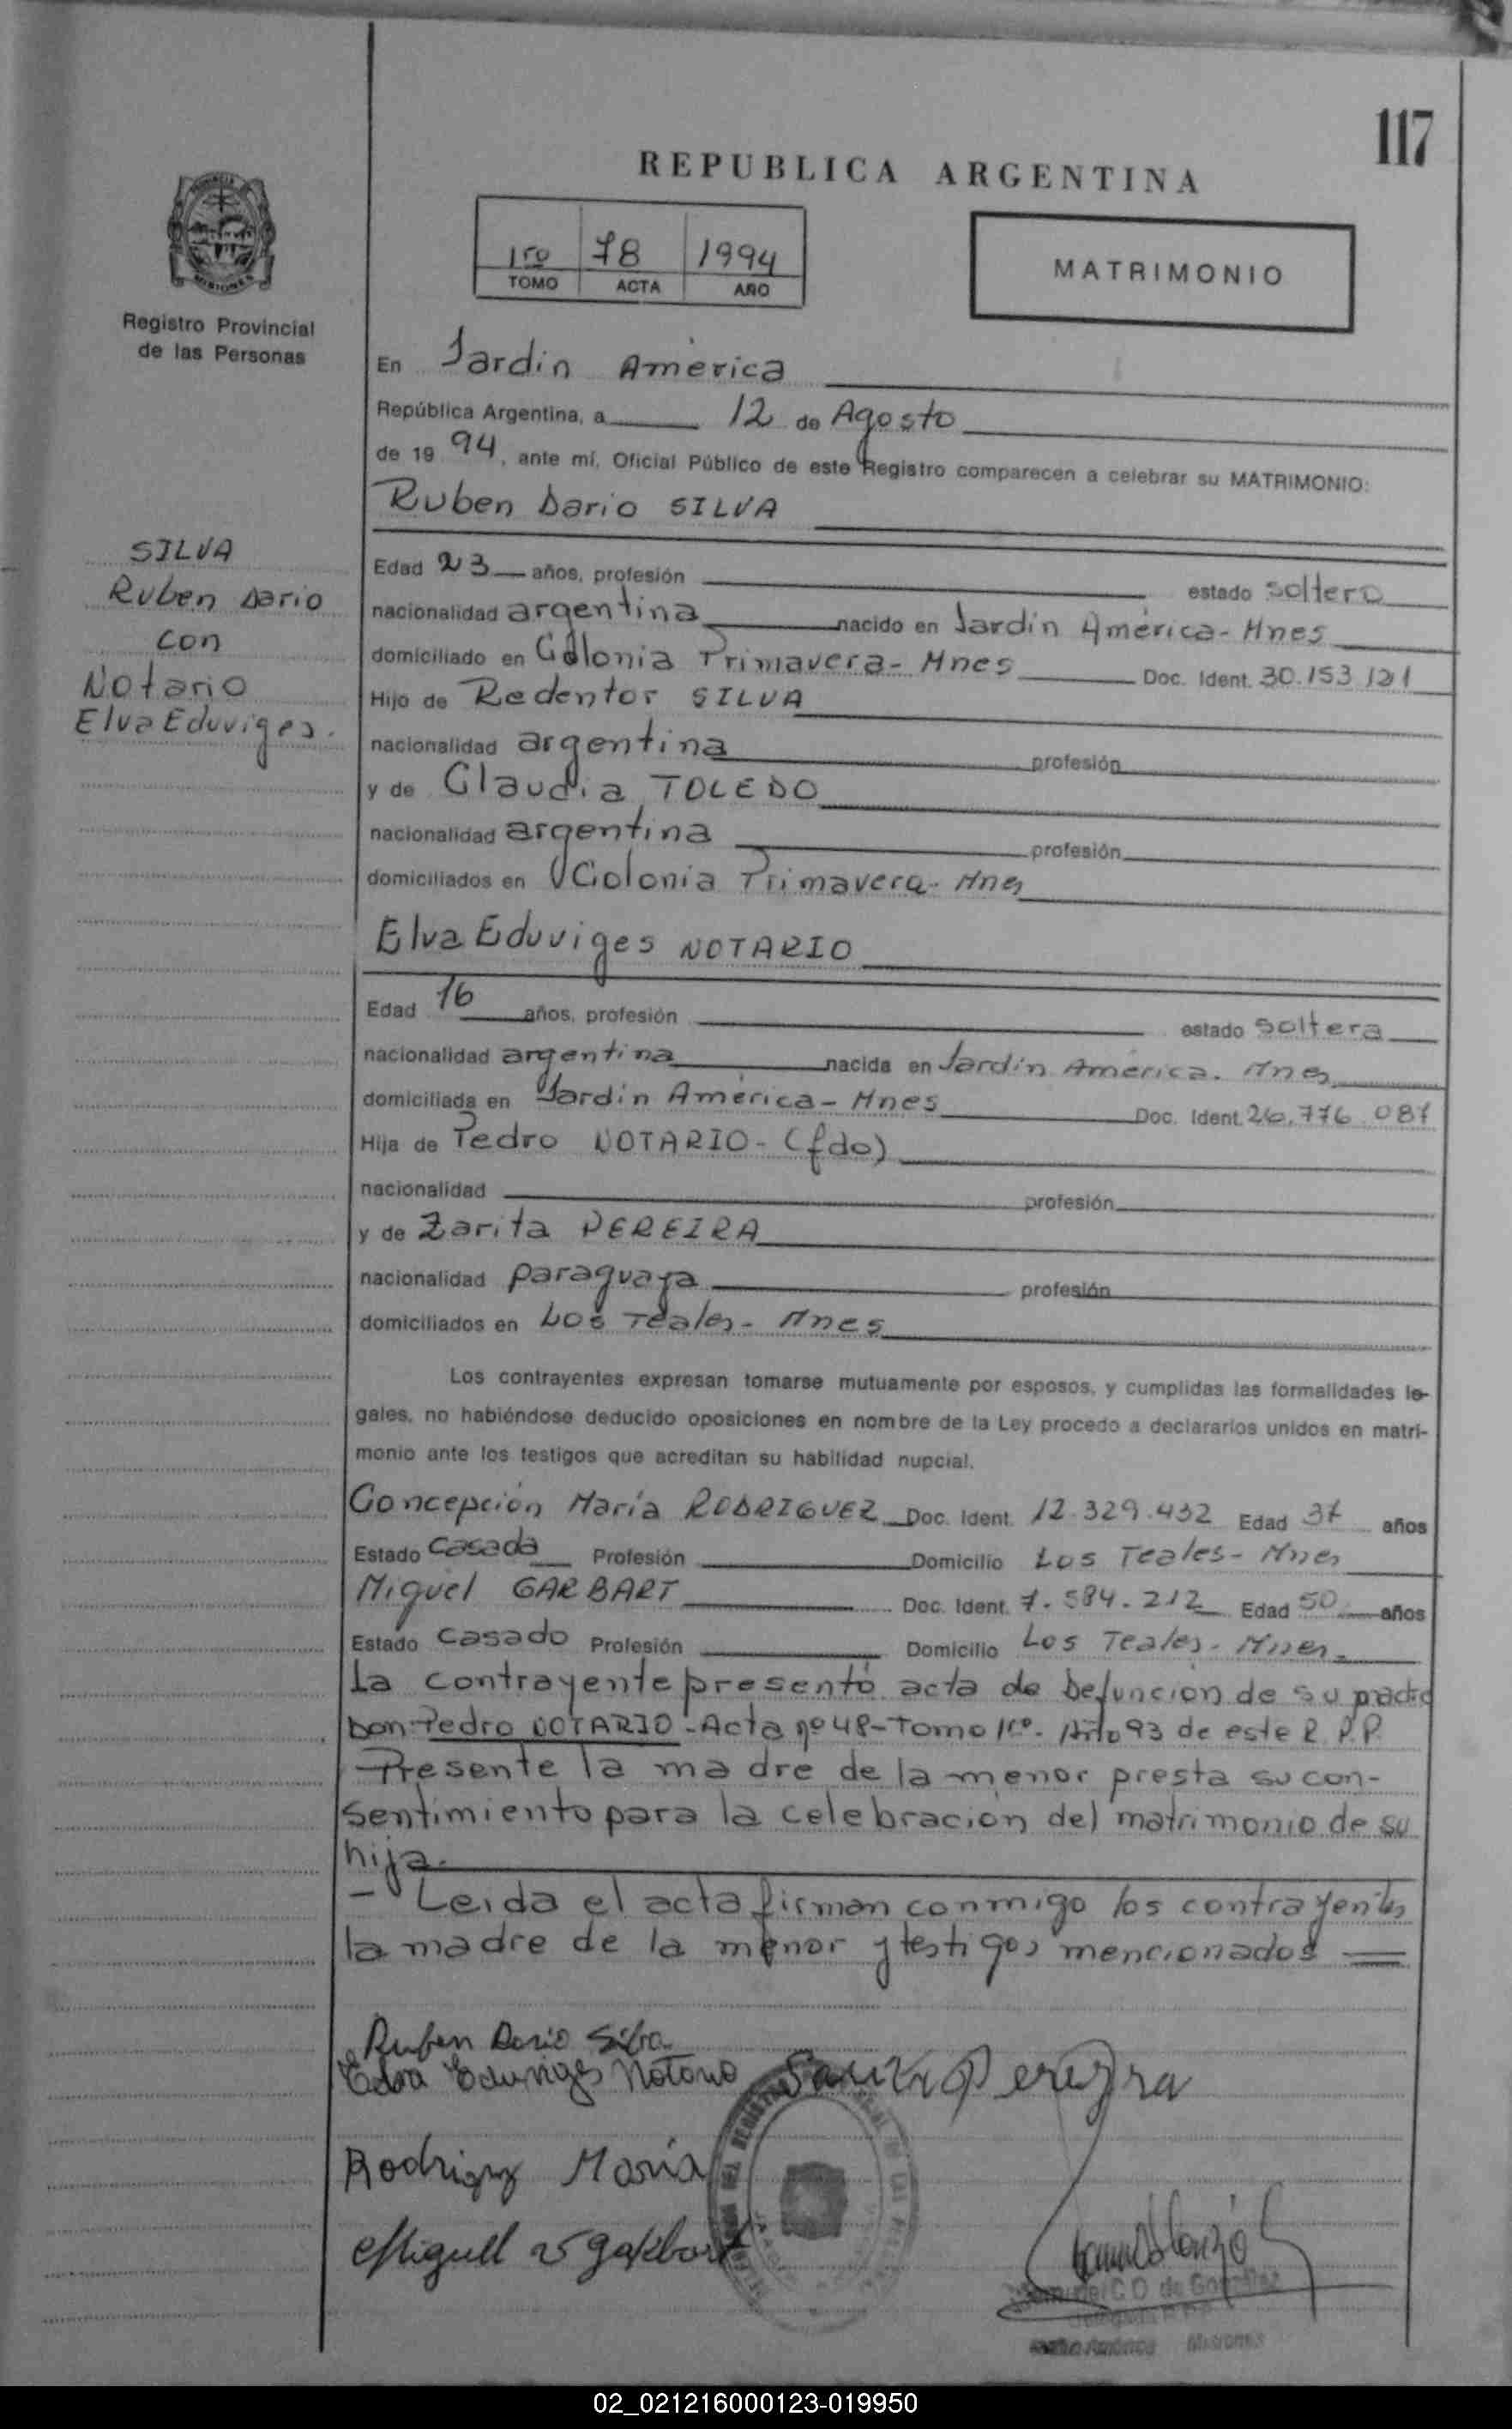 117
REPUBLICA ARGENTINA
1ro 78 1994
TOMO ACTA AÑO
MATRIMONIO
PROVINCIA
MISIONES
Registro Provincial
de las Personas
SILVA
Ruben Dario
con
Notario
Elva Eduviges.
En Jardin América
República Argentina, a 12 de Agosto
de 19 94, ante mí, Oficial Público de este Registro comparecen a celebrar su MATRIMONIO:
Ruben Dario SILVA
Edad 23 años, profesión estado soltero
nacionalidad argentina nacido en Jardín América - Mnes
domiciliado en Colonia Primavera - Mnes Doc. Ident. 30.153.121
Hijo de Redentor SILVA
nacionalidad argentina profesión
y de Claudia TOLEDO
nacionalidad argentina profesión
domiciliados en Colonia Primavera - Mnes
Elva Eduviges NOTARIO
Edad 16 años, profesión estado soltera
nacionalidad argentina nacida en Jardín América. Mnes
domiciliada en Jardín América - Mnes Doc. Ident. 26.776.087
Hija de Pedro NOTARIO - (fdo)
nacionalidad profesión
y de Zarita PEREIRA
nacionalidad paraguaya profesión
domiciliados en Los Teales - Mnes
Los contrayentes expresan tomarse mutuamente por esposos, y cumplidas las formalidades le-
gales, no habiéndose deducido oposiciones en nombre de la Ley procedo a declararlos unidos en matri-
monio ante los testigos que acreditan su habilidad nupcial.
Concepción María RODRIGUEZ Doc. Ident. 12.329.432 Edad 37 años
Estado Casada Profesión Domicilio Los Teales - Mnes
Miguel GARBART Doc. Ident. 7.584.212 Edad 50 años
Estado casado Profesión Domicilio Los Teales - Mnes.
La contrayente presentó acta de Defunción de su padre
Don Pedro NOTARIO - Acta nº 48 - Tomo 1ro. Año 93 de este R.P.P.
- Presente la madre de la menor presta su con-
sentimiento para la celebración del matrimonio de su
hija.
- Leida el acta firman conmigo los contrayentes
la madre de la menor y testigos mencionados =
Ruben Dario Silva
Elva Eduviges Notario Pereyra
Rodriguez María
Miguel
C.D. de González
Jardín América Misiones
02_021216000123-019950